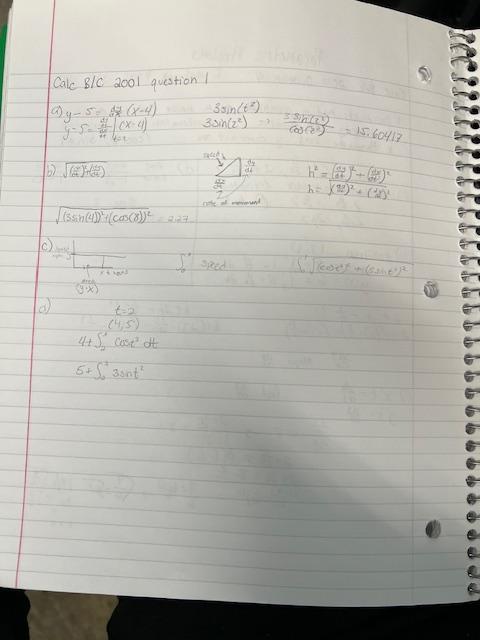 Calc B/C 2001 question 1
a) y - 5 = dy/dx (x-4)
3sin(t²)
y - 5 = dy/dt / dx/dt | t=2 (x-4)
3sin(2²) → 3sin(2²) / cos(2³) = 15.60417
b) √(dx/dt)²+(dy/dt)²
speed
dy/dt
dx/dt
rate of movement
h² = (dy/dt)² + (dx/dt)²
h = √(dy/dt)² + (dx/dt)²
√(3sin(4))²+(cos(8))² = 2.27
c)
speed
(y·x)
d)
t=2
(4,5)
4+∫ cost³ dt
5+∫ 3sint²